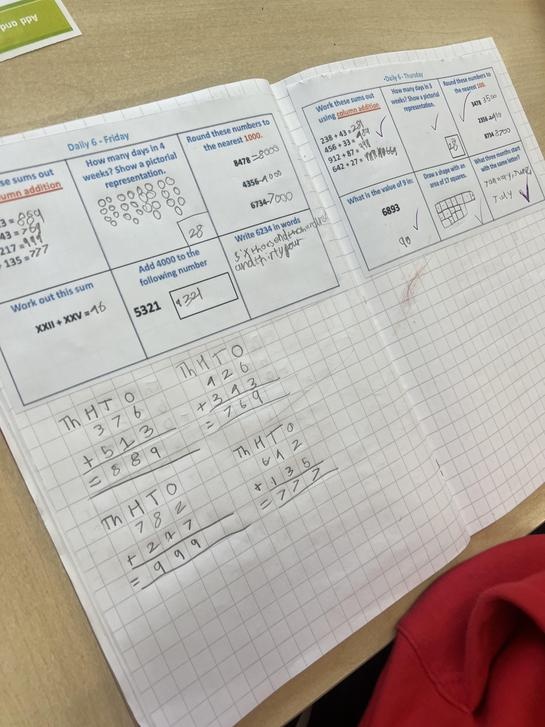 Add and
Daily 6 - Friday
se sums out
umn addition
3 = 889
43 = 769
217 = 999
135 = 777
How many days in 4
weeks? Show a pictorial
representation.
28
Round these numbers to
the nearest 1000.
8478 - 8000
4356 - 4000
6734 - 7000
Work out this sum
XXII + XXV = 46
Add 4000 to the
following number
5321
9321
Write 6234 in words
six thousend
and thirty four
Th H T O
3 7 6
+ 5 1 3
= 8 8 9
Th H T O
4 2 6
+ 3 4 3
= 7 6 9
Th H T O
7 8 2
+ 2 1 7
= 9 9 9
Th H T O
6 4 2
+ 1 3 5
= 7 7 7
Daily 6 - Thursday
Work these sums out
using column addition
238 + 43 = 281
456 + 33 = 489
912 + 87 =
642 + 27 =
How many days in 3
weeks? Show a pictorial
representation.
Round these numbers to
the nearest 100.
3478 3500
8714 8700
What is the value of 9 in:
6893
90
Draw a shape with an
area of 17 squares.
What three months start
with the same letter?
July